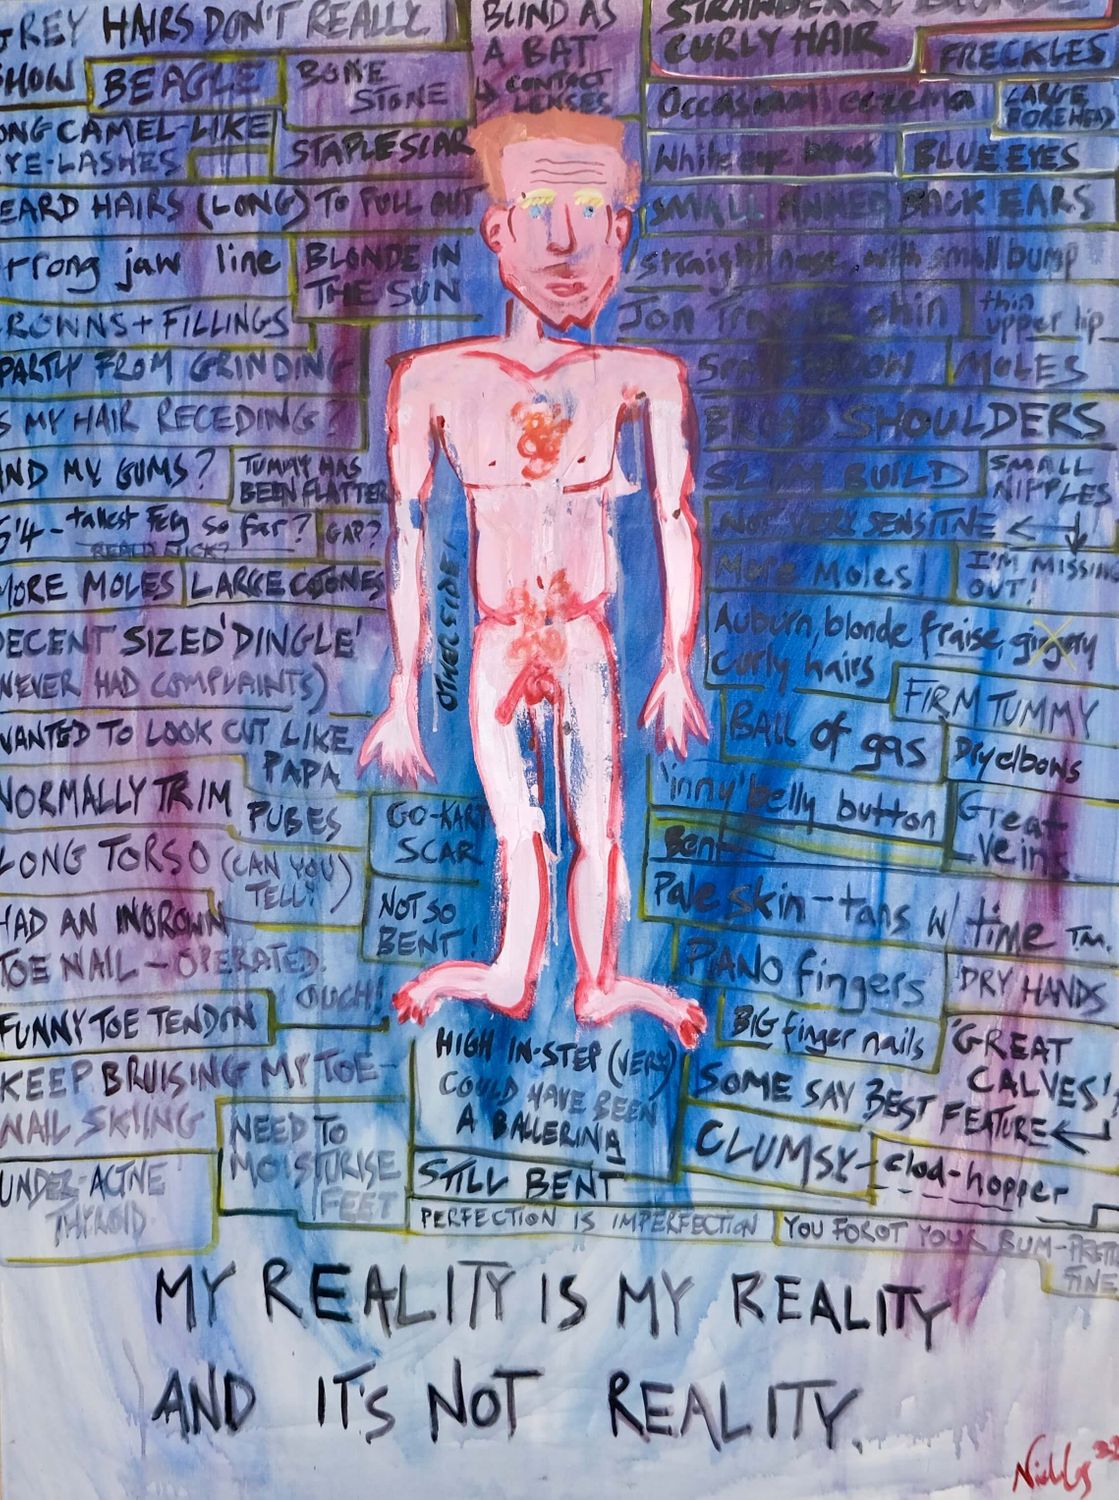 GREY HAIRS DON'T REALLY
SHOW
BEAGLE
BONE
STONE
BLIND AS
A BAT
CONTACT
LENSES
STRAWBERRY BLONDE
CURLY HAIR
FRECKLES
LONG CAMEL-LIKE
EYE-LASHES
STAPLE SCAR
Occasional eczema
LARGE
FOREHEAD
White eye brows
BLUE EYES
BEARD HAIRS (LONG) TO PULL OUT
SMALL PINNED BACK EARS
strong jaw line
BLONDE IN
THE SUN
straight nose with small bump
CROWNS + FILLINGS
PARTLY FROM GRINDING
Jon chin
thin
upper lip
MOLES
IS MY HAIR RECEDING?
AND MY GUMS?
BROAD SHOULDERS
TUMMY HAS
BEEN FLATTER
SLIM BUILD
SMALL
NIPPLES
6'4 - tallest so far?
GAP?
NOT VERY SENSITIVE
I'M MISSING
OUT!
MORE MOLES
LARGE COJONES
More Moles!
OTHERSIDE!
DECENT SIZED 'DINGLE'
(NEVER HAD COMPLAINTS)
Auburn, blonde fraise, gingery
curly hairs
WANTED TO LOOK CUT LIKE
PAPA
FIRM TUMMY
BALL of gas
Dry elbows
NORMALLY TRIM
PUBES
GO-KART
SCAR
'inny' belly button
Great
veins
Bent
LONG TORSO (CAN YOU
TELL?)
NOT SO
BENT!
Pale skin - tans w/ time TM
HAD AN INGROWN
TOE NAIL - OPERATED.
OUCH!
PIANO fingers
DRY HANDS
FUNNY TOE TENDON
BIG finger nails
'GREAT
CALVES'!
KEEP BRUISING MY TOE-
NAIL SKIING
HIGH IN-STEP (VERY)
COULD HAVE BEEN
A BALLERINA
SOME SAY BEST FEATURE
NEED TO
MOISTURISE
FEET
CLUMSY - clod-hopper
UNDER-ACTIVE
THYROID
STILL BENT
PERFECTION IS IMPERFECTION
YOU FOROT YOUR BUM-PRETTY
MY REALITY IS MY REALITY
AND IT'S NOT REALITY.